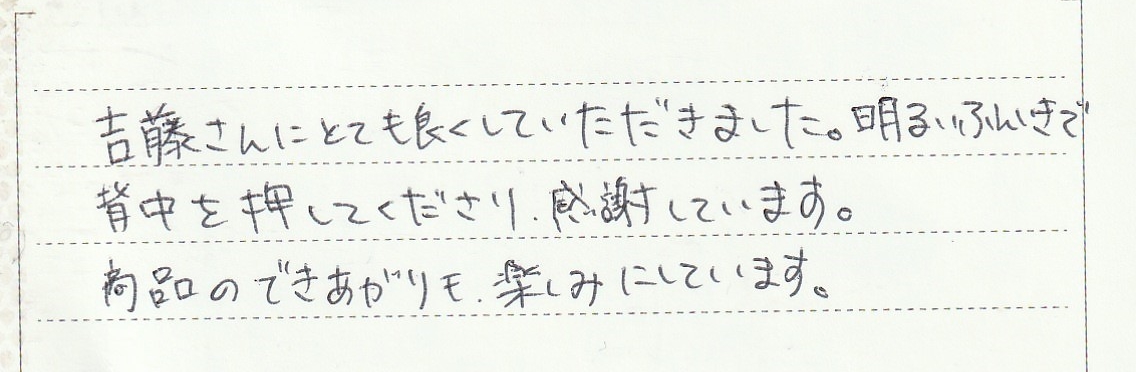 吉藤さんにとても良くしていただきました。明るいふんいきで
背中を押してくださり、感謝しています。
商品のできあがりも、楽しみにしています。